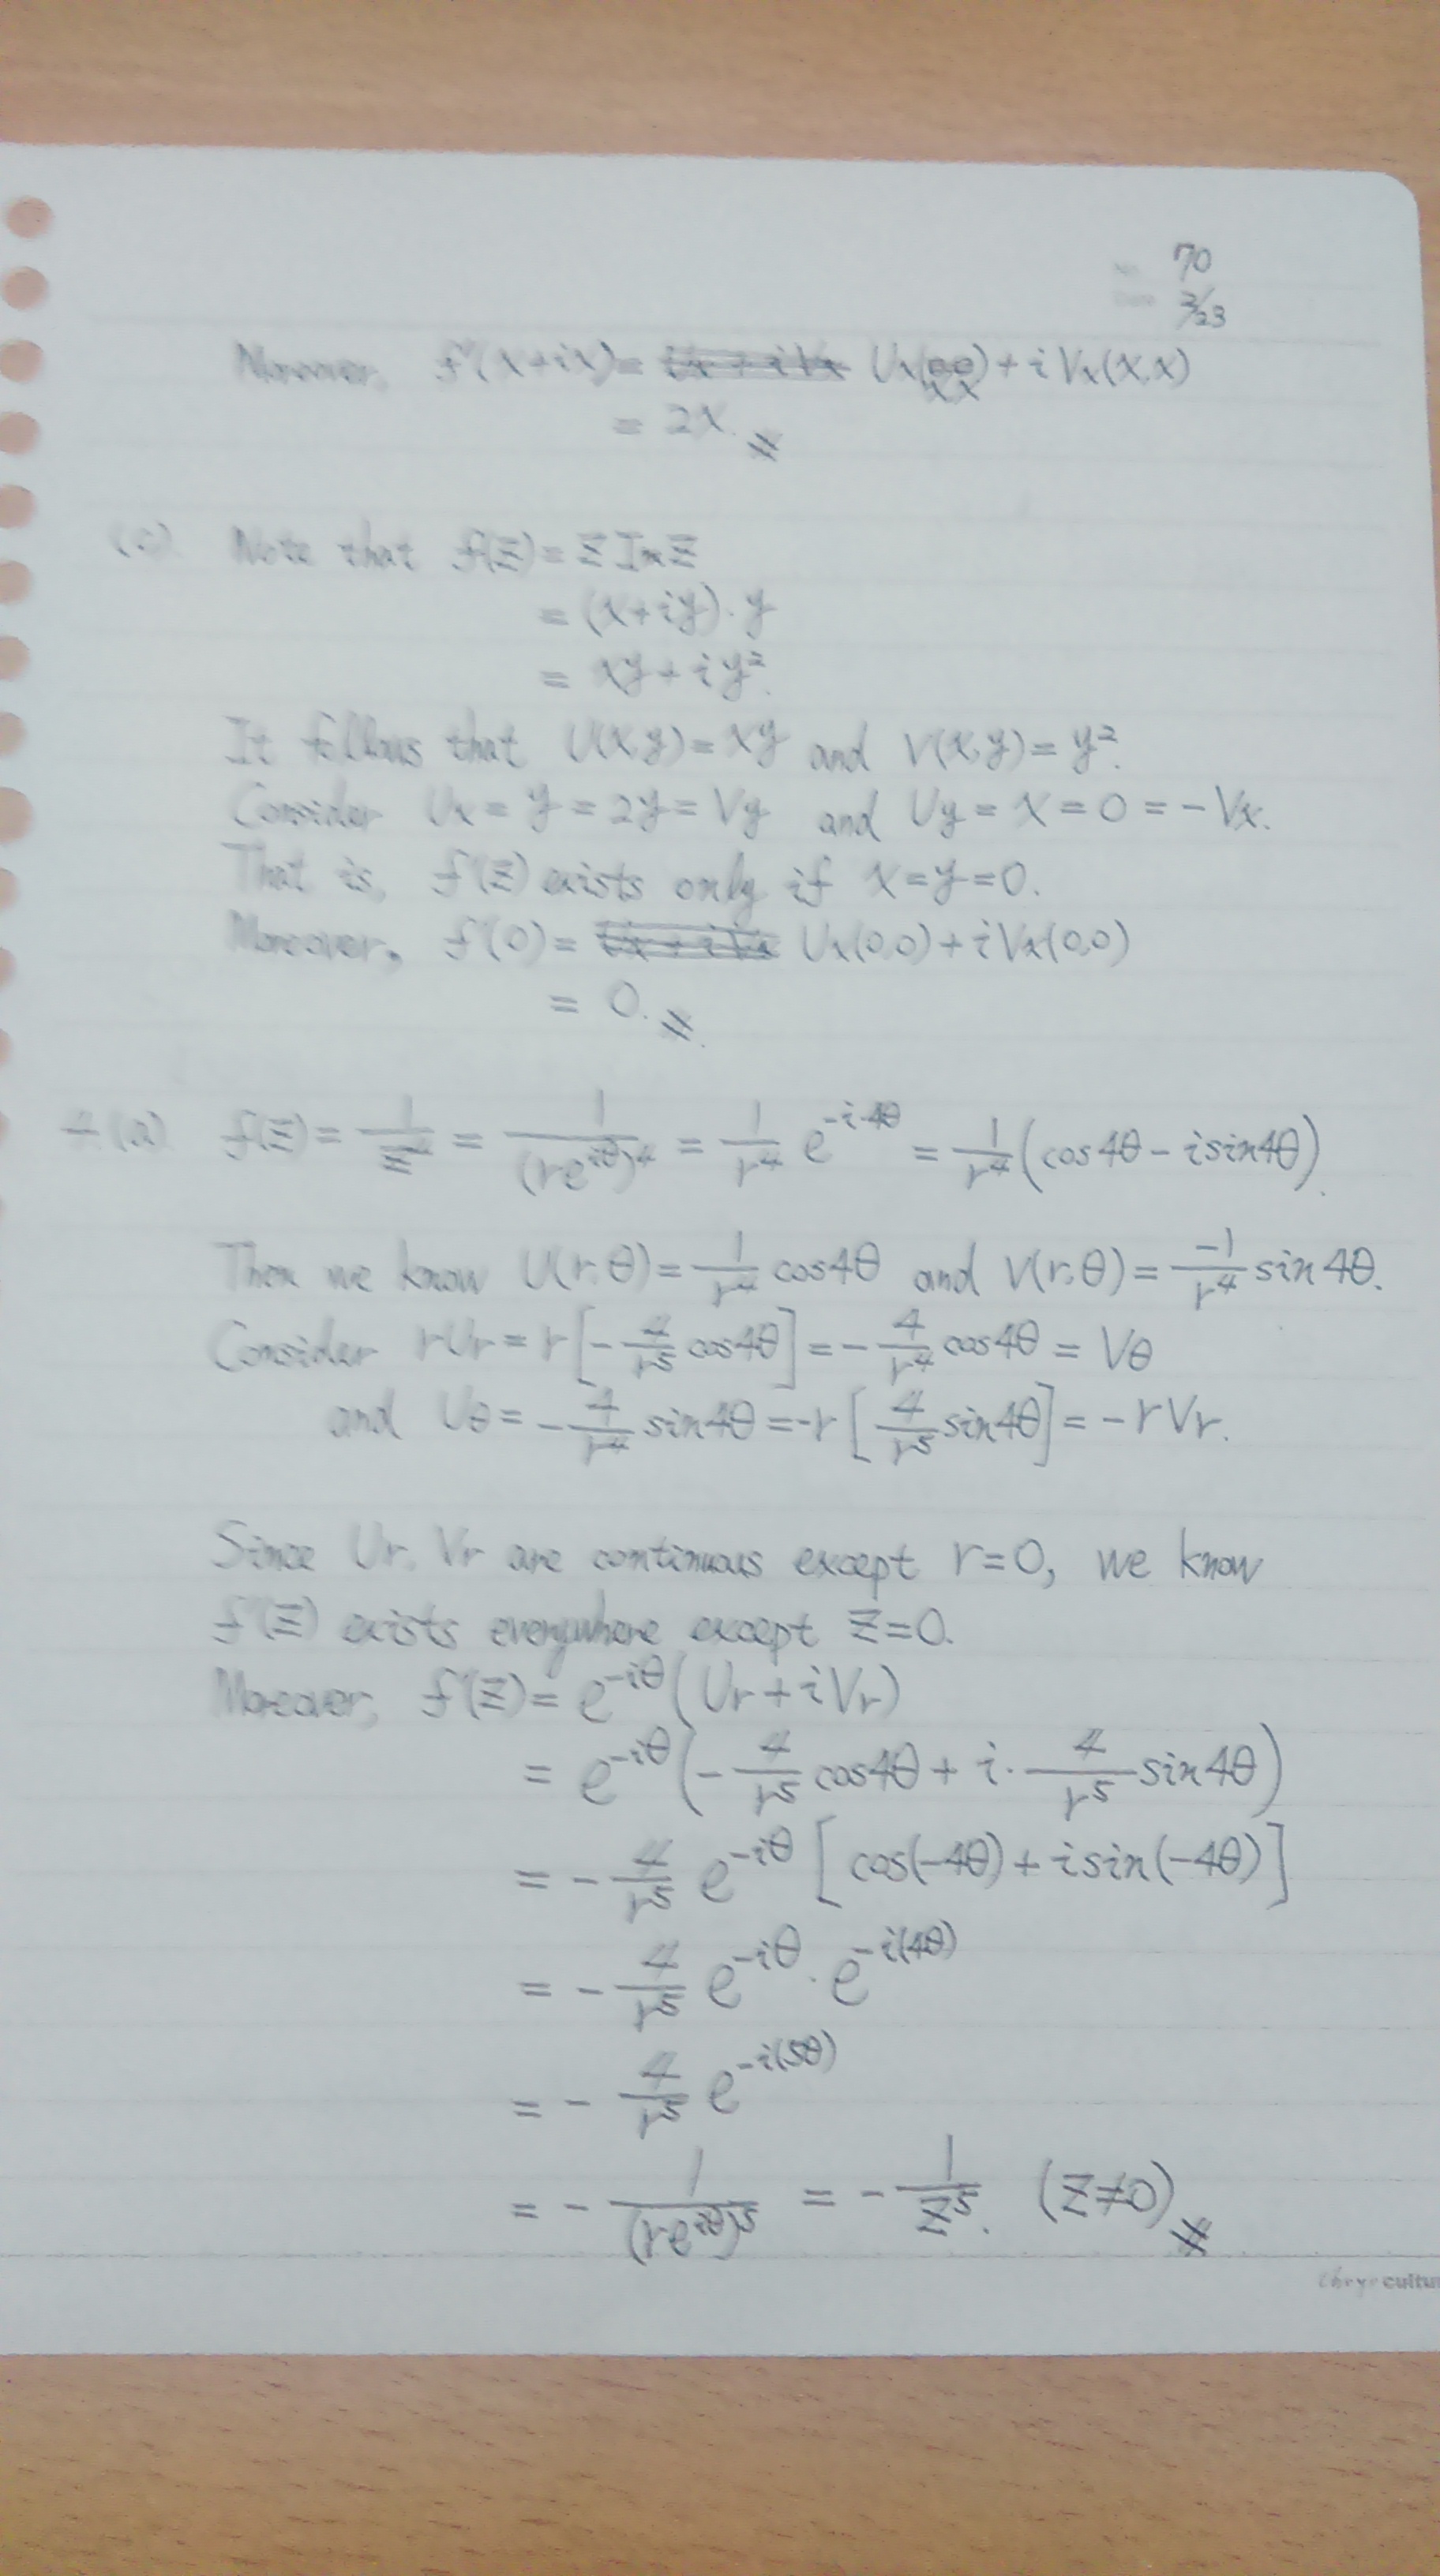 70
3/23
Moreover, f'(x+ix) = Ux(x,x) + i Vx(x,x)
= 2x.
(c) Note that f(z) = z Im z
= (x+iy)·y
= xy + iy².
It follows that U(x,y) = xy and V(x,y) = y².
Consider Ux = y = 2y = Vy and Uy = x = 0 = -Vx.
That is, f'(z) exists only if x=y=0.
Moreover, f'(0) = Ux(0,0) + i Vx(0,0)
= 0.
4.(a) f(z) = 1/z⁴ = 1/(re^{iθ})⁴ = 1/r⁴ e^{-i·4θ} = 1/r⁴ (cos4θ - i sin4θ).
Then we know U(r,θ) = 1/r⁴ cos4θ and V(r,θ) = -1/r⁴ sin4θ.
Consider rUr = r[-4/r⁵ cos4θ] = -4/r⁴ cos4θ = Vθ
and Uθ = -4/r⁴ sin4θ = -r[4/r⁵ sin4θ] = -rVr.
Since Ur, Vr are continuous except r=0, we know
f'(z) exists everywhere except z=0.
Moreover, f'(z) = e^{-iθ}(Ur + iVr)
= e^{-iθ}(-4/r⁵ cos4θ + i·4/r⁵ sin4θ)
= -4/r⁵ e^{-iθ} [cos(-4θ) + i sin(-4θ)]
= -4/r⁵ e^{-iθ}·e^{-i(4θ)}
= -4/r⁵ e^{-i(5θ)}
= -1/(re^{iθ})⁵ = -1/z⁵. (z≠0)